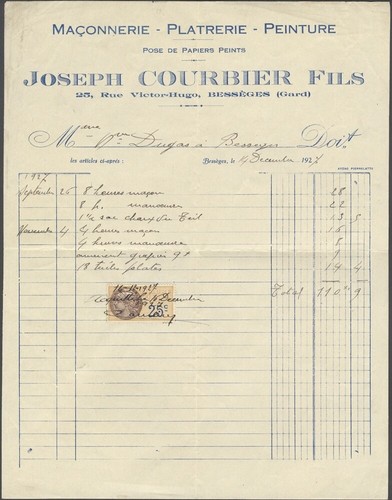 MAÇONNERIE - PLATRERIE - PEINTURE
POSE DE PAPIERS PEINTS
JOSEPH COURBIER FILS
25, Rue Victor-Hugo, BESSÈGES (Gard)
Mme Vve Dugas à Bessèges Doit
les articles ci-après : Bessèges, le 9 Décembre 1927
1927
Septembre 26 8 heures maçon 28
8 h. manœuvre 22
1 sac chaux du Teil 13 5
Novembre 4 4 heures maçon 16
4 heures manœuvre 8
9
18 tuiles plates 14 4
Total 110 9
1927
Décembre
25c